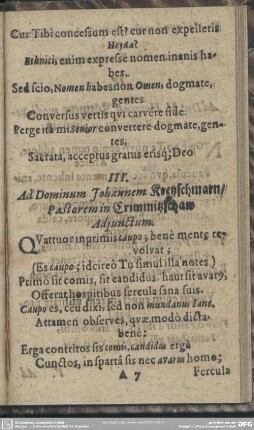 Cur Tibi concessum est? cur non expelleris
Heyda?
Ethnici, enim expresse nomen inanis ha-
bes.
Sed scio, Nomen habes non Omen, dogmate,
gentes
Conversus vertis qvi carvère fide.
Perge ita mi Senior convertere dogmate, gen-
tes,
Sacrata, acceptus gratus erisq; Deo
III.
Ad Dominum Johannem Kretzschmarn/
Pastorem in Crimmitzschaw
Adjunctum.
QVattuor inprimis caupo; benè mente re-
volvat;
(Es caupo; idcircò Tu simul illa notes)
Primò sit comis, sit candidus, haut sit avarq,
Offerat hospitibus fercula sana suis.
Caupo es, ceu dixi, sed non mundanus sanè,
Attamen observes, quæ modò dicta-
benè:
Erga contritos sis comis, candidus ergà
Cunctos, in spartâ sis nec avarus homo;
A 7
Fercula